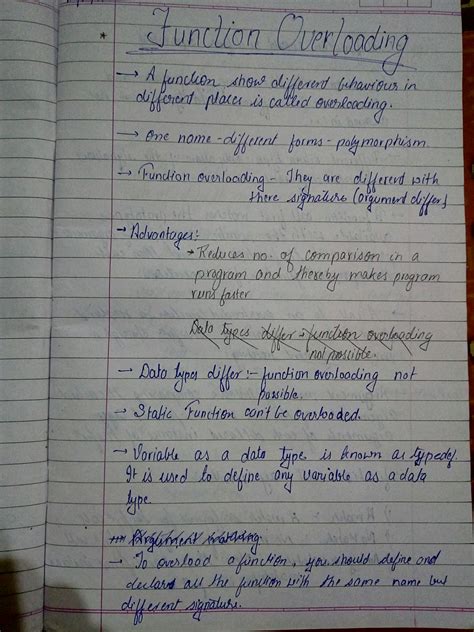 Function Overloading
→ A function show different behaviour in
different places is called overloading.
→ One name - different forms - polymorphism
→ Function overloading - They are different with
there signature (argument differ)
→ Advantages:
→ Reduces no. of comparison in a
program and thereby makes program
runs faster
Data types differ :- function overloading
not possible.
→ Data types differ :- function overloading not
possible.
→ Static Function can't be overloaded.
→ Variable as a data type is known as typedef
It is used to define any variable as a data
type.
Argument matching
→ To overload a function, you should define and
declare all the function with the same name but
different signature.